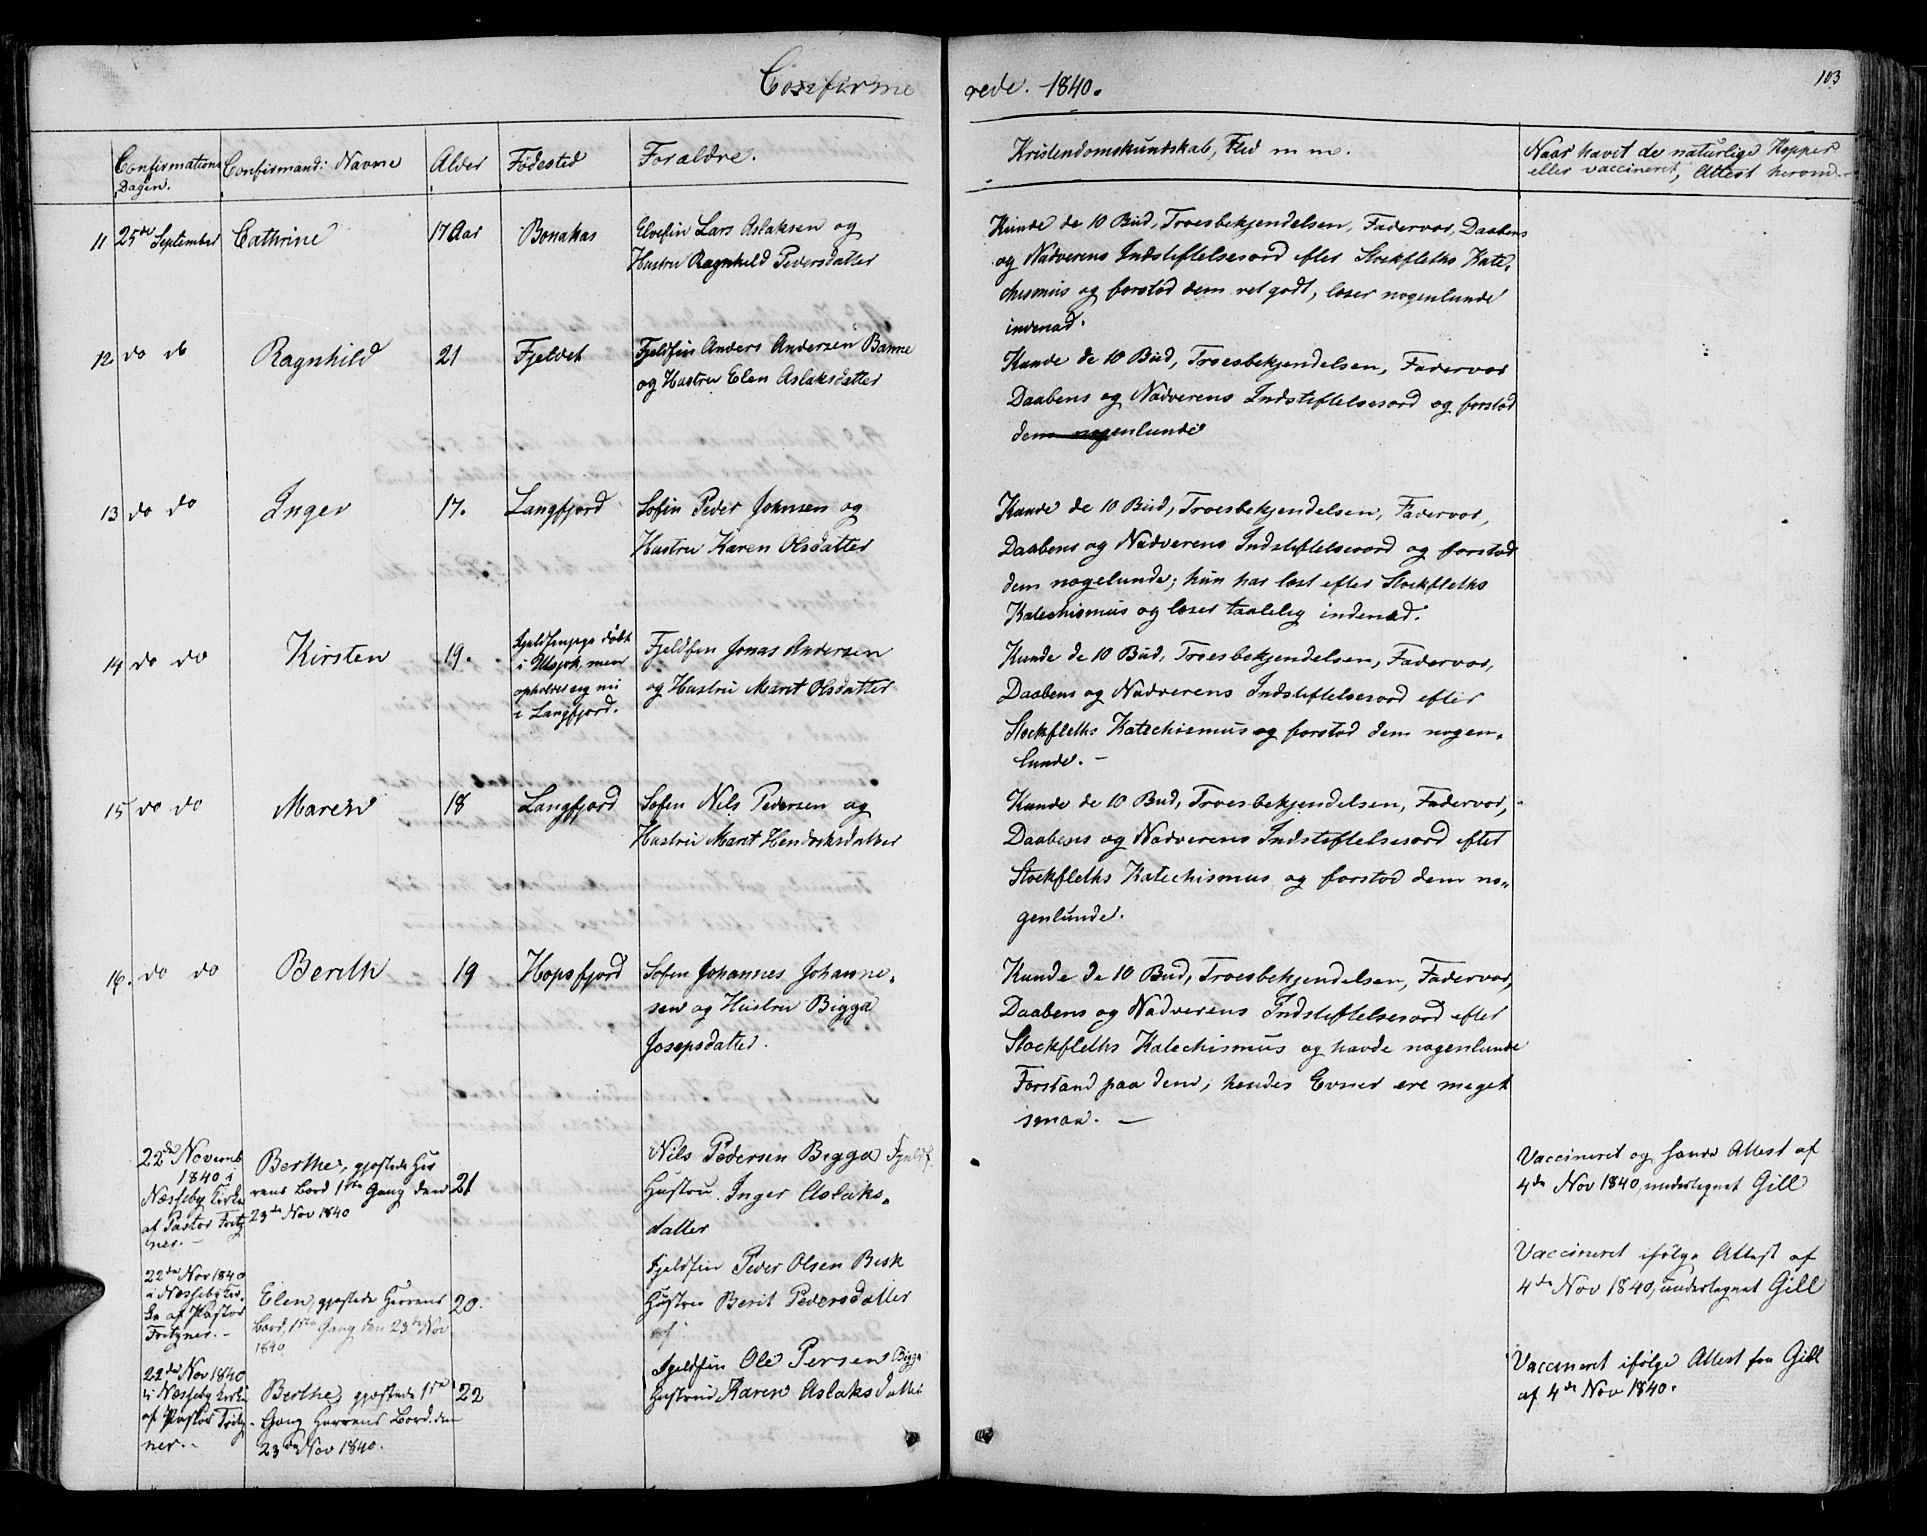 Confirmerede. 1840.
103
Confirmations Dagen.
Confirmand: Navne
Alder
Fødested
Forældre.
Kristendomskundskab, Flid m m.
Naar havet de naturlige Kopper
eller vaccineret, Attest herom.-
11 25de September
Cathrine
17 Aar
Bonakas
Elvefin Lars Aslaksen og
Hustru Ragnhild Pedersdatter
Kunde de 10 Bud, Troesbekjendelsen, Fadervor, Daabens
og Nadverens Indstiftelsesord efter Stockfleths Kate-
chismus og forstod dem ret godt, læser nogenlunde
indenad.
12 do do
Ragnhild
21
Fjeldet
Fjeldfin Anders Andersen Banne
og Hustru Elen Aslaksdatter
Kunde de 10 Bud, Troesbekjendelsen, Fadervor
Daabens og Nadverens Indstiftelsesord og forstod
dem nogenlunde
13 do do
Inger
17.
Langfjord
Søfin Peder Johnsen og
Hustru Karen Olsdatter
Kunde de 10 Bud, Troesbekjendelsen, Fadervor,
Daabens og Nadverens Indstiftelsesord og forstod
dem nogelunde; hun har læst efter Stockfleths
Katechismus og læser taalelig indenad.
14 do do
Kirsten
19.
døbt
i Utsjok, men
opholder sig nu
i Langfjord.
Fjeldfin Jonas Andersen
og Hustru Maret Olsdatter
Kunde de 10 Bud, Troesbekjendelsen, Fadervor,
Daabens og Nadverens Indstiftelsesord efter
Stockfleths Katechismus og forstod dem nogen-
lunde. -
15 do do
Maren
18
Langfjord
Søfin Nils Pedersen og
Hustru Maret Hendriksdatter
Kunde de 10 Bud, Troesbekjendelsen, Fadervor,
Daabens og Nadverens Indstiftelsesord efter
Stockfleths Katechismus og forstod dem no-
genlunde.
16. do do
Berith
19
Hopsfjord
Søfin Johannes Johanne-
sen og Hustru Bigga
Josepsdatter.
Kunde de 10 Bud, Troesbekjendelsen, Fadervor,
Daabens og Nadverens Indstiftelsesord efter
Stockfleths Katechismus og havde nogenlunde
Forstand paa dem; hendes Evner ere meget
smaa. -
22de Novemb
1840 i
Næsseby Kirke
af Pastor Fritz-
ner.-
Berthe, gjæstede Her
rens Bord 1ste Gang den
23de Nov 1840
21
Nils Pedersen Bigga Fjeldf.
Hustru Inger Aslaks-
datter
Vaccineret og havde Attest af
4de Nov 1840, undertegnet Gill
22de Nov 1840
i Næsseby Kir-
ke af Pastor
Fritzner.-
Elen, gjæstede Herrens
Bord, 1ste Gang den 23de Nov
1840
20.
Fjeldfin Peder Olsen Besk
Hustru Berit Pedersdatter
Vaccineret ifølge Attest af
4de Nov 1840, undertegnet Gill
22de Nov 1840
i Næsseby Kirke
af Pastor Fritz-
ner.-
Berthe, gjæstede 1ste
Gang Herrens Bord den
23de Nov 1840.
22
Fjeldfin Ole Persen Bigga
Hustru Karen Aslaksdatter
Vaccineret ifølge Attest fra Gill
af 4de Nov 1840.